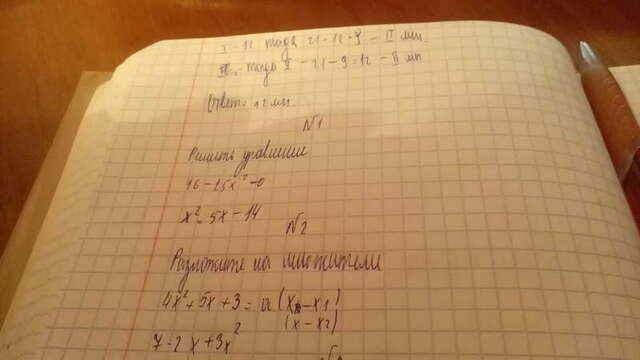 I - 12 тогда 21-12=9 - II мн
тогда I - 21-9=12 - II мн
Ответ: 12 мн.
N1
Решить уравнение
16-25x²=0
x²=5x-14
N2
Разложите на множители
4x²+5x+3=a(x-x1)
(x-x2)
7-2x+3x²